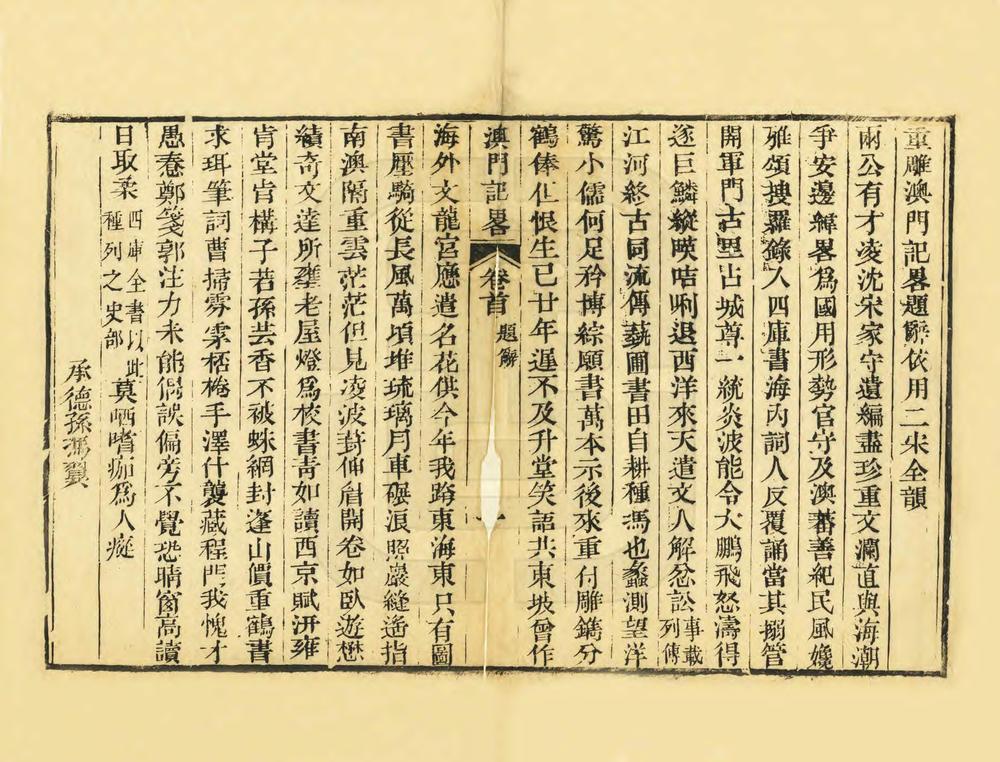 重雕澳門記畧題辭依用二宋全韻
兩公有才凌沈宋家守遺編盡珍重文瀾直與海潮
爭安邊緯畧爲國用形勢官守及澳蕃善紀民風嬈
雅頌搜羅錄入四庫書海內詞人反覆誦當其搦管
開軍門古墨占城尊一統炎波能令大鵬飛怒濤得
逐巨鱗縱暎咭唎退西洋來天遣文人解忿訟事載列傳
江河終古同流傳藝圃書田自耕種馮也蠡測望洋
驚小儒何足矜博綜願書萬本示後來重付雕鐫分
鶴俸但恨生已廿年遲不及升堂笑語共東坡曾作
澳門記畧 卷首 題辭 一
海外文龍宮應遣名花供今年我路東海東只有圖
書壓騎從長風萬頃堆琉璃月車碾浪照巖縫遙指
南澳隔重雲茫茫但見凌波葑伸眉開卷如臥遊懋
績奇文達所壅老屋燈爲校書青如讀西京賦汧雍
肯堂肯構子若孫芸香不被蛛網封逢山價重鶴書
求珥筆詞曹掃雰雺桮棬手澤什襲藏程門我愧才
愚惷鄭箋郭注力未能偶誤偏旁不覺恐晴窗高讀
日取柔四庫全書以此種列之史部莫哂嗜痂爲人癡
承德孫馮翼